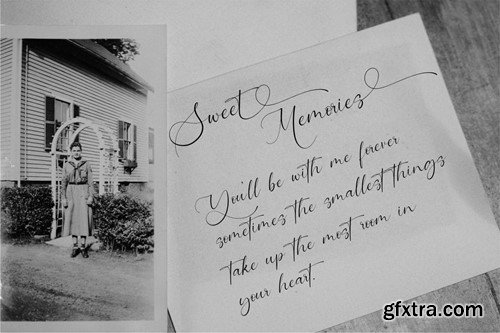 Sweet Memories
You'll be with me forever
sometimes the smallest things
take up the most room in
your heart.
gfxtra.com